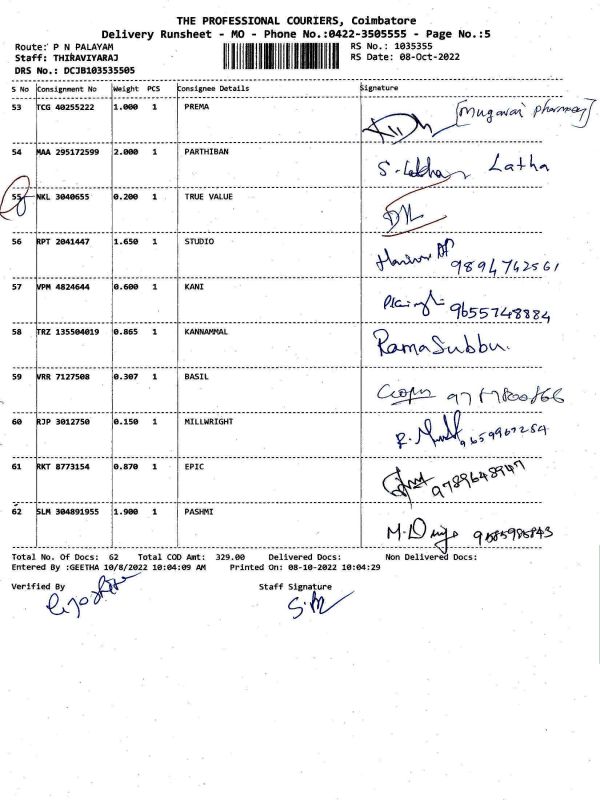 THE PROFESSIONAL COURIERS, Coimbatore
Delivery Runsheet - MO - Phone No.:0422-3505555 - Page No.:5
Route: P N PALAYAM RS No.: 1035355
Staff: THIRAVIYARAJ RS Date: 08-Oct-2022
DRS No.: DCJB103535505
S No Consignment No Weight PCS Consignee Details Signature
53 TCG 40255222 1.000 1 PREMA [Mugavai pharmacy]
54 MAA 295172599 2.000 1 PARTHIBAN Latha
55 NKL 3040655 0.200 1 TRUE VALUE
56 RPT 2041447 1.650 1 STUDIO 9894742561
57 VPM 4824644 0.600 1 KANI 9655748884
58 TRZ 135504019 0.865 1 KANNAMMAL Rama Subbu.
59 VRR 7127508 0.307 1 BASIL
60 RJP 3012750 0.150 1 MILLWRIGHT 9659967284
61 RKT 8773154 0.870 1 EPIC 9789648947
62 SLM 304891955 1.900 1 PASHMI
Total No. Of Docs: 62 Total COD Amt: 329.00 Delivered Docs: Non Delivered Docs:
Entered By :GEETHA 10/8/2022 10:04:09 AM Printed On: 08-10-2022 10:04:29
Verified By Staff Signature